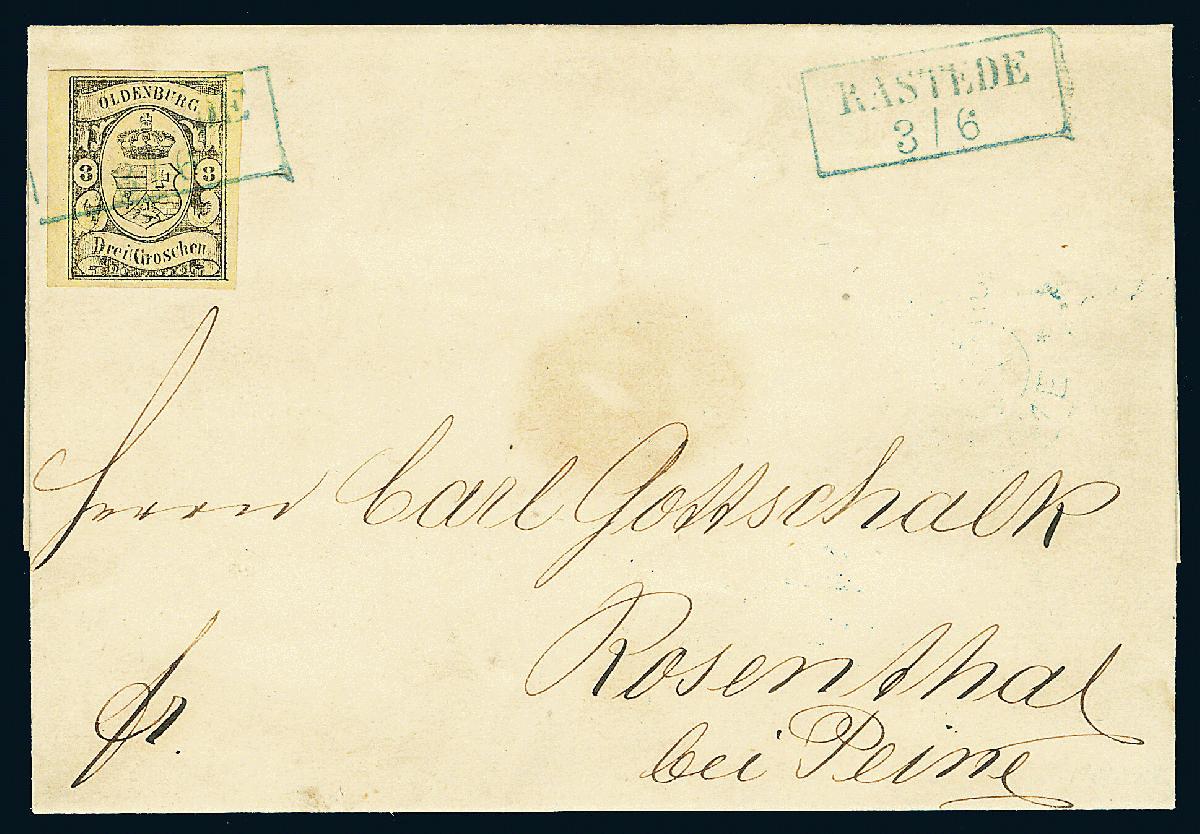 OLDENBURG
3 3
Drei Groschen
DE
RASTEDE
3/6
NE *
Herrn Carl Gottschalk
Rosenthal
bei Peine
fr.